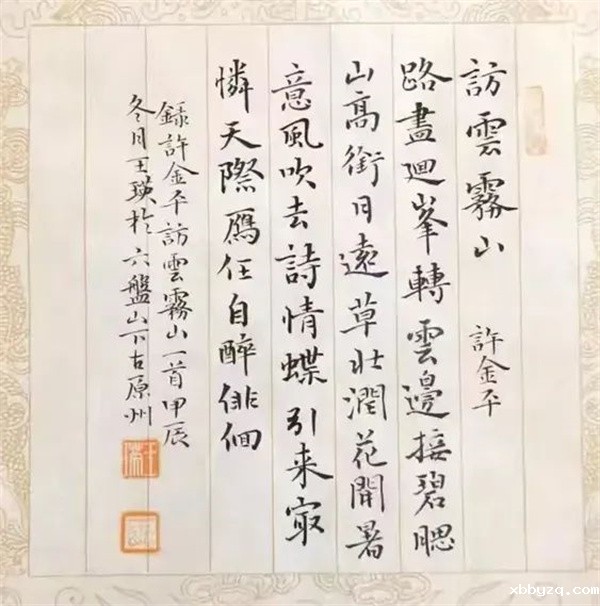 訪雲霧山 許金平
路盡迴峯轉雲邊接碧腮
山高銜日遠草壯潤花開暑
意風吹去詩情蝶引来寂
憐天際鴈任自醉俳佪
錄許金平訪雲霧山一首甲辰
冬月王瑛於六盤山下古原州
xbbyzq.com